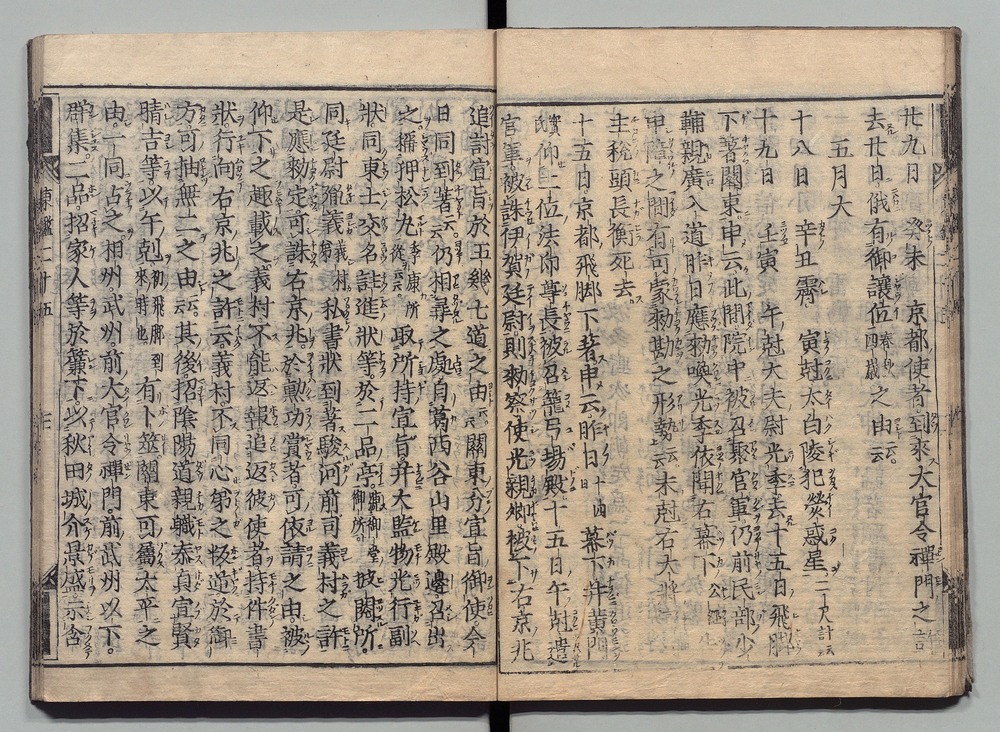 廿九日 癸未 京都使者到來大官令禪門之許
去廿日俄有御讓位春秋四歳之由云云
五月大
十八日 辛丑霽 寅尅太白陵犯熒惑星二尺計云云
十九日 壬寅 午尅大夫尉光季去十五日飛脚
下著關東申云此間院中被召聚官軍仍前民部少
輔親廣入道昨日應勅喚光季依聞右幕下公經
申障之間有可蒙勅勘之形勢云云未尅右大將
主税頭長衡死去
十五日京都飛脚下著申云昨日十四日幕下并黄門
實氏仰二位法印尊長被召籠弓場殿十五日午尅遣
官軍被誅伊賀廷尉則勅按察使光親卿被下右京兆
追討宣旨於五畿七道之由云云關東分宣旨御使今
日同到著云云仍相尋之處自葛西谷山里殿邊召出
之稱押松丸秀康所從云云取所持宣旨并大監物光行副
狀同東士交名註進狀等於二品亭號御堂御所披閲所
同廷尉胤義義村弟私書狀到著駿河前司義村之許
是應勅定可誅右京兆於勲功賞者可依請之由被
仰下之趣載之義村不能返報追返彼使者持件書
狀行向右京兆之許云義村不同心弟之叛逆於御
方可抽無二之由云云其後招陰陽道親職泰貞宣賢
晴吉等以午尅初飛脚到來時也有卜筮關東可屬太平之
由一同占之相州武州前大官令禪門前武州以下
群集二品招家人等於簾下以秋田城介景盛示含
東鑑二十五